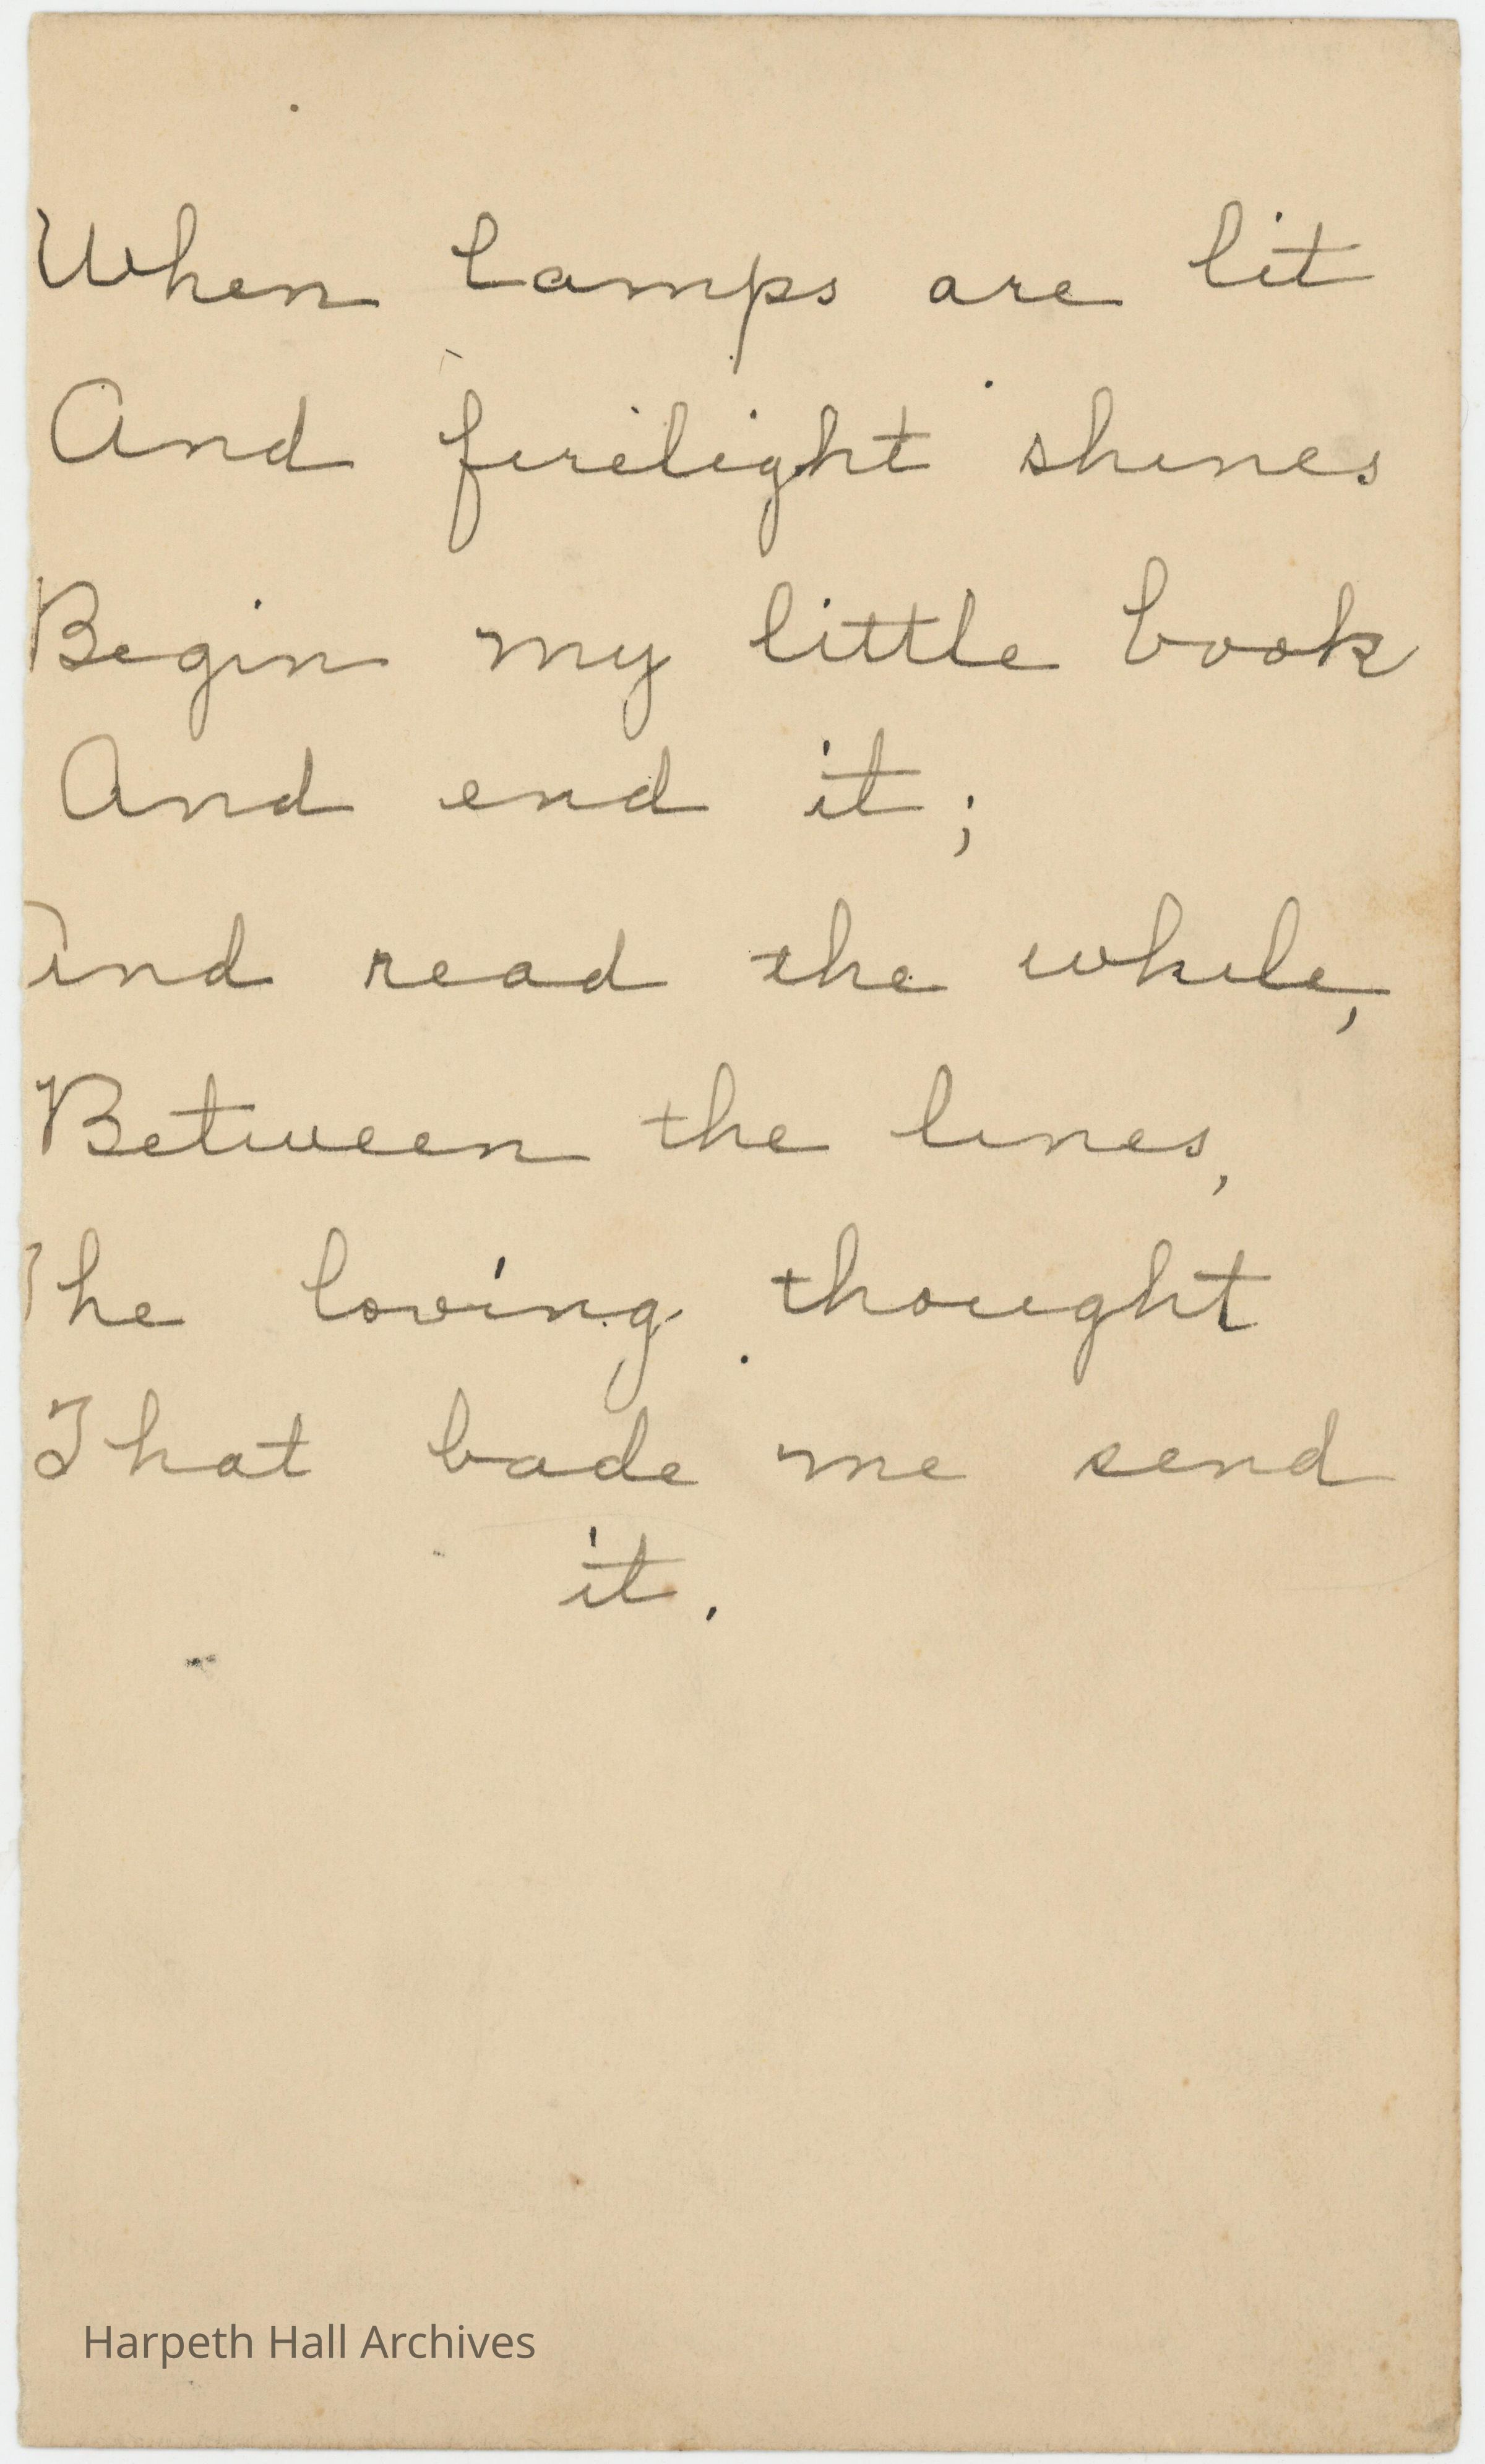 When lamps are lit
And firelight shines
Begin my little book
And end it;
And read the while,
Between the lines,
The loving thought
That bade me send
it.
Harpeth Hall Archives